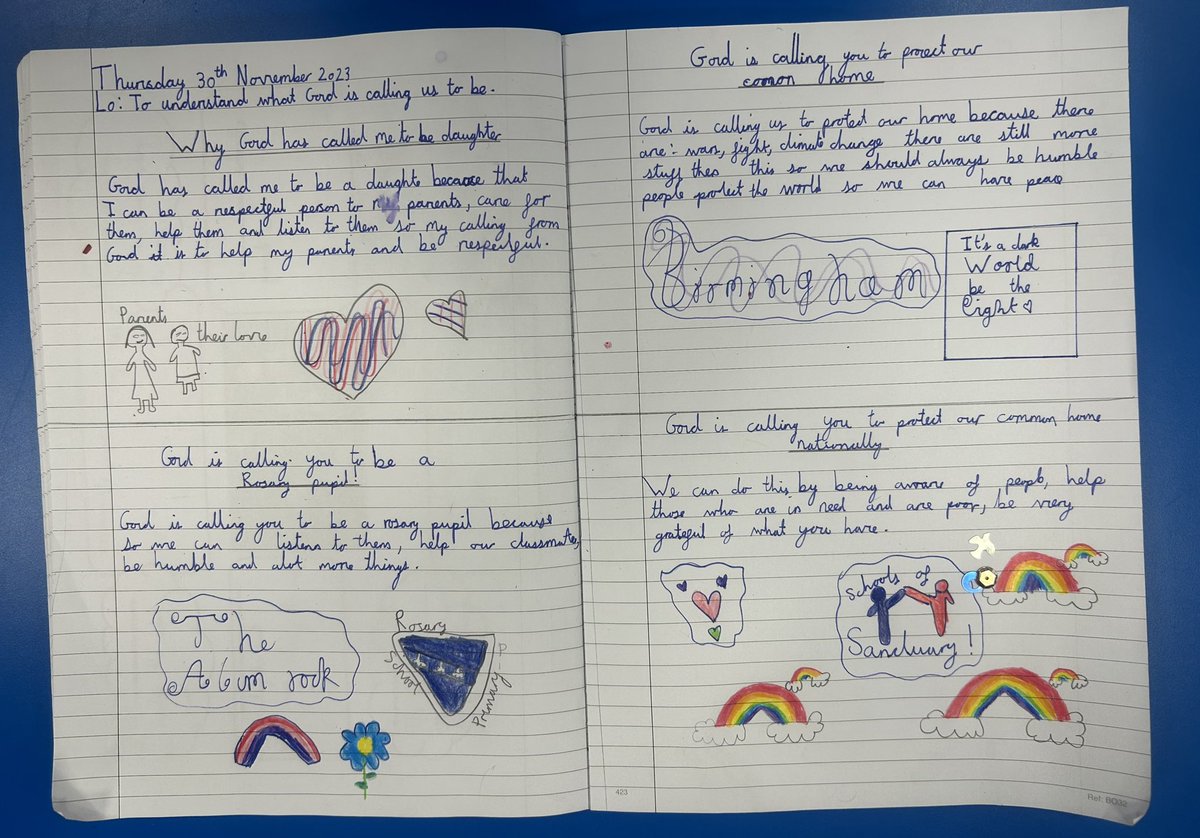 Thursday 30th November 2023
Lo: To understand what God is calling us to be.
Why God has called me to be daughter
God has called me to be a daughte because that
I can be a respectful person to my parents, care for
them, help them and listen to them so my calling from
God it is to help my parents and be respectful.
Parents
their love
God is calling you to be a
Rosary pupil!
God is calling you to be a rosary pupil because
so we can listens to them, help our classmates,
be humble and alot more things.
The
Alum rock
Rosary
School
Primary
God is calling you to protect our
comon home
God is calling us to protect our home because there
are: wars, fight, climate change there are still more
stuff then this so we should always be humble
people protect the world so we can have peace
Birmingham
It's a dark
World
be the
light
God is calling you to protect our common home
nationally
We can do this by being aware of people, help
those who are in need and are poor, be very
grateful of what you have.
Schools of
Sanctuary!
423
Ref: BO32